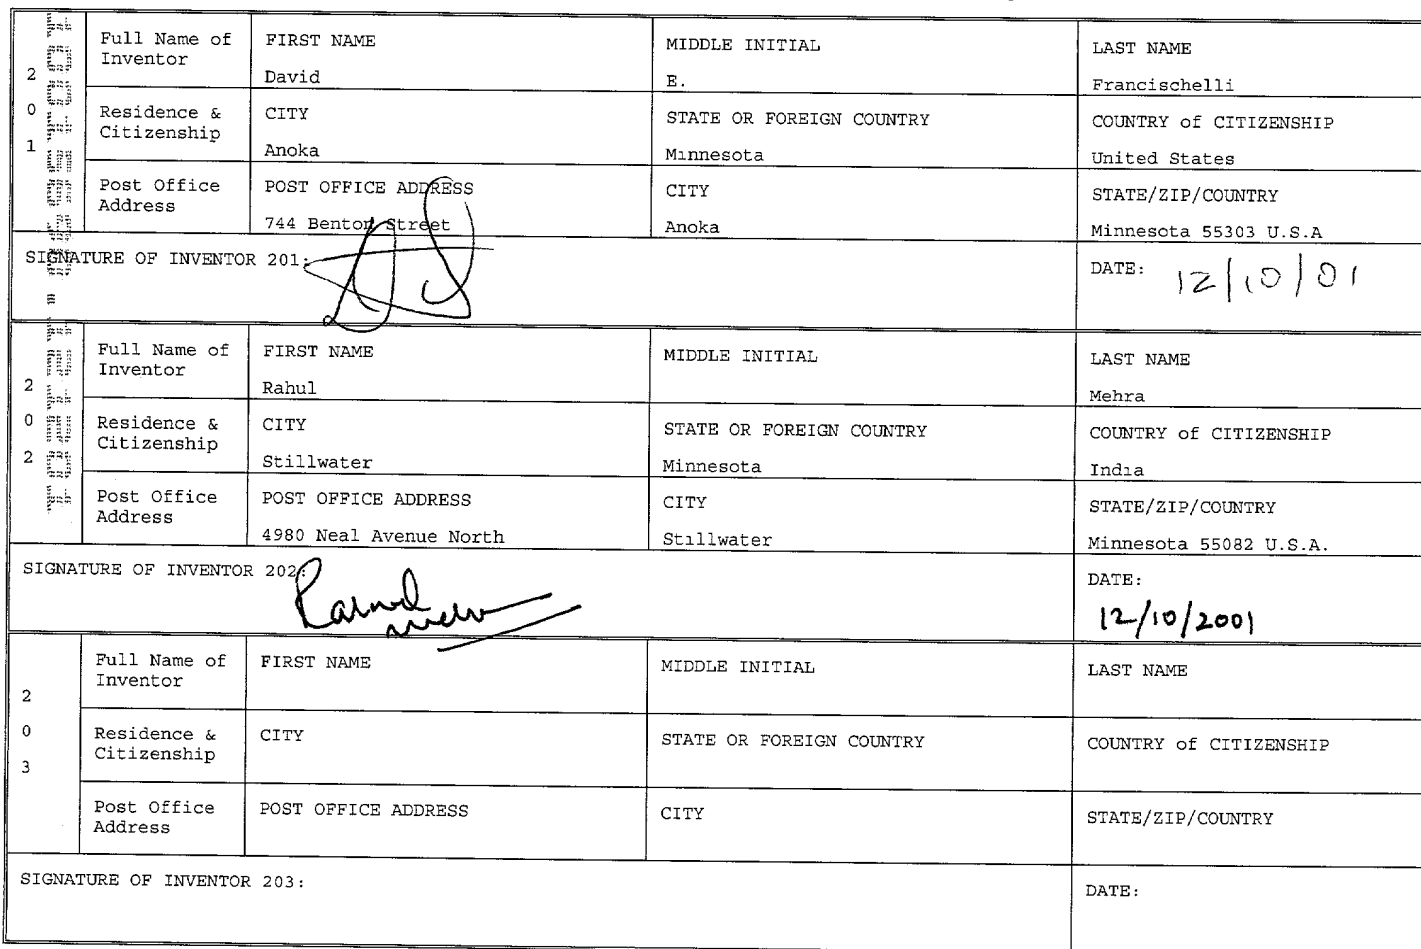 2 0 1
Full Name of Inventor
FIRST NAME
David
MIDDLE INITIAL
E.
LAST NAME
Francischelli
Residence & Citizenship
CITY
Anoka
STATE OR FOREIGN COUNTRY
Minnesota
COUNTRY of CITIZENSHIP
United States
Post Office Address
POST OFFICE ADDRESS
744 Benton Street
CITY
Anoka
STATE/ZIP/COUNTRY
Minnesota 55303 U.S.A
SIGNATURE OF INVENTOR 201:
DATE: 12/10/01
2 0 2
Full Name of Inventor
FIRST NAME
Rahul
MIDDLE INITIAL
LAST NAME
Mehra
Residence & Citizenship
CITY
Stillwater
STATE OR FOREIGN COUNTRY
Minnesota
COUNTRY of CITIZENSHIP
India
Post Office Address
POST OFFICE ADDRESS
4980 Neal Avenue North
CITY
Stillwater
STATE/ZIP/COUNTRY
Minnesota 55082 U.S.A.
SIGNATURE OF INVENTOR 202:
DATE:
12/10/2001
2 0 3
Full Name of Inventor
FIRST NAME
MIDDLE INITIAL
LAST NAME
Residence & Citizenship
CITY
STATE OR FOREIGN COUNTRY
COUNTRY of CITIZENSHIP
Post Office Address
POST OFFICE ADDRESS
CITY
STATE/ZIP/COUNTRY
SIGNATURE OF INVENTOR 203:
DATE: